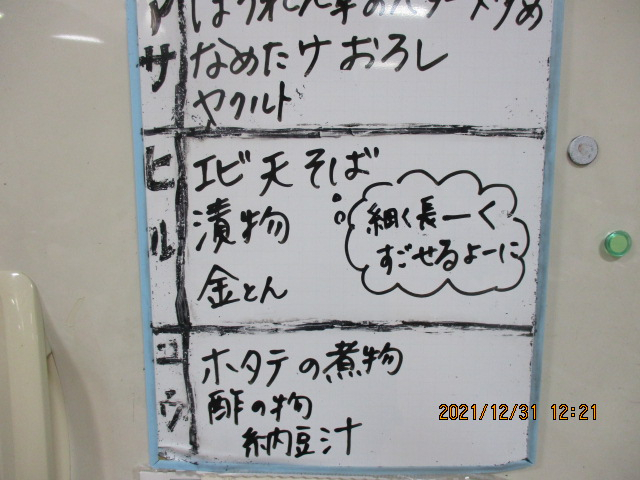 アサ
ほうれん草のバター炒め
なめたけおろし
ヤクルト
ヒル
エビ天そば
漬物
金とん
細く長ーく
すごせるよーに
ユウ
ホタテの煮物
酢の物
納豆汁
2021/12/31 12:21